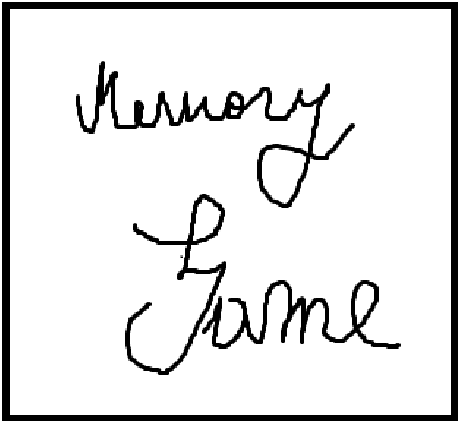 Memory
Game